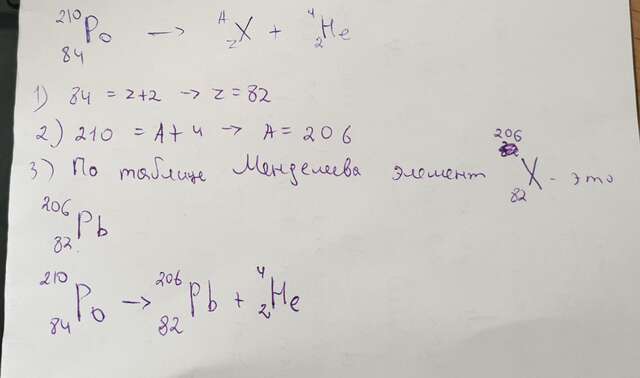 ²¹⁰₈₄Po → ᴬzX + ⁴₂He
1) 84 = z+2 → z = 82
2) 210 = A+4 → A = 206
3) По таблице Менделеева элемент ²⁰⁶₈₂X - это
²⁰⁶₈₂Pb
²¹⁰₈₄Po → ²⁰⁶₈₂Pb + ⁴₂He